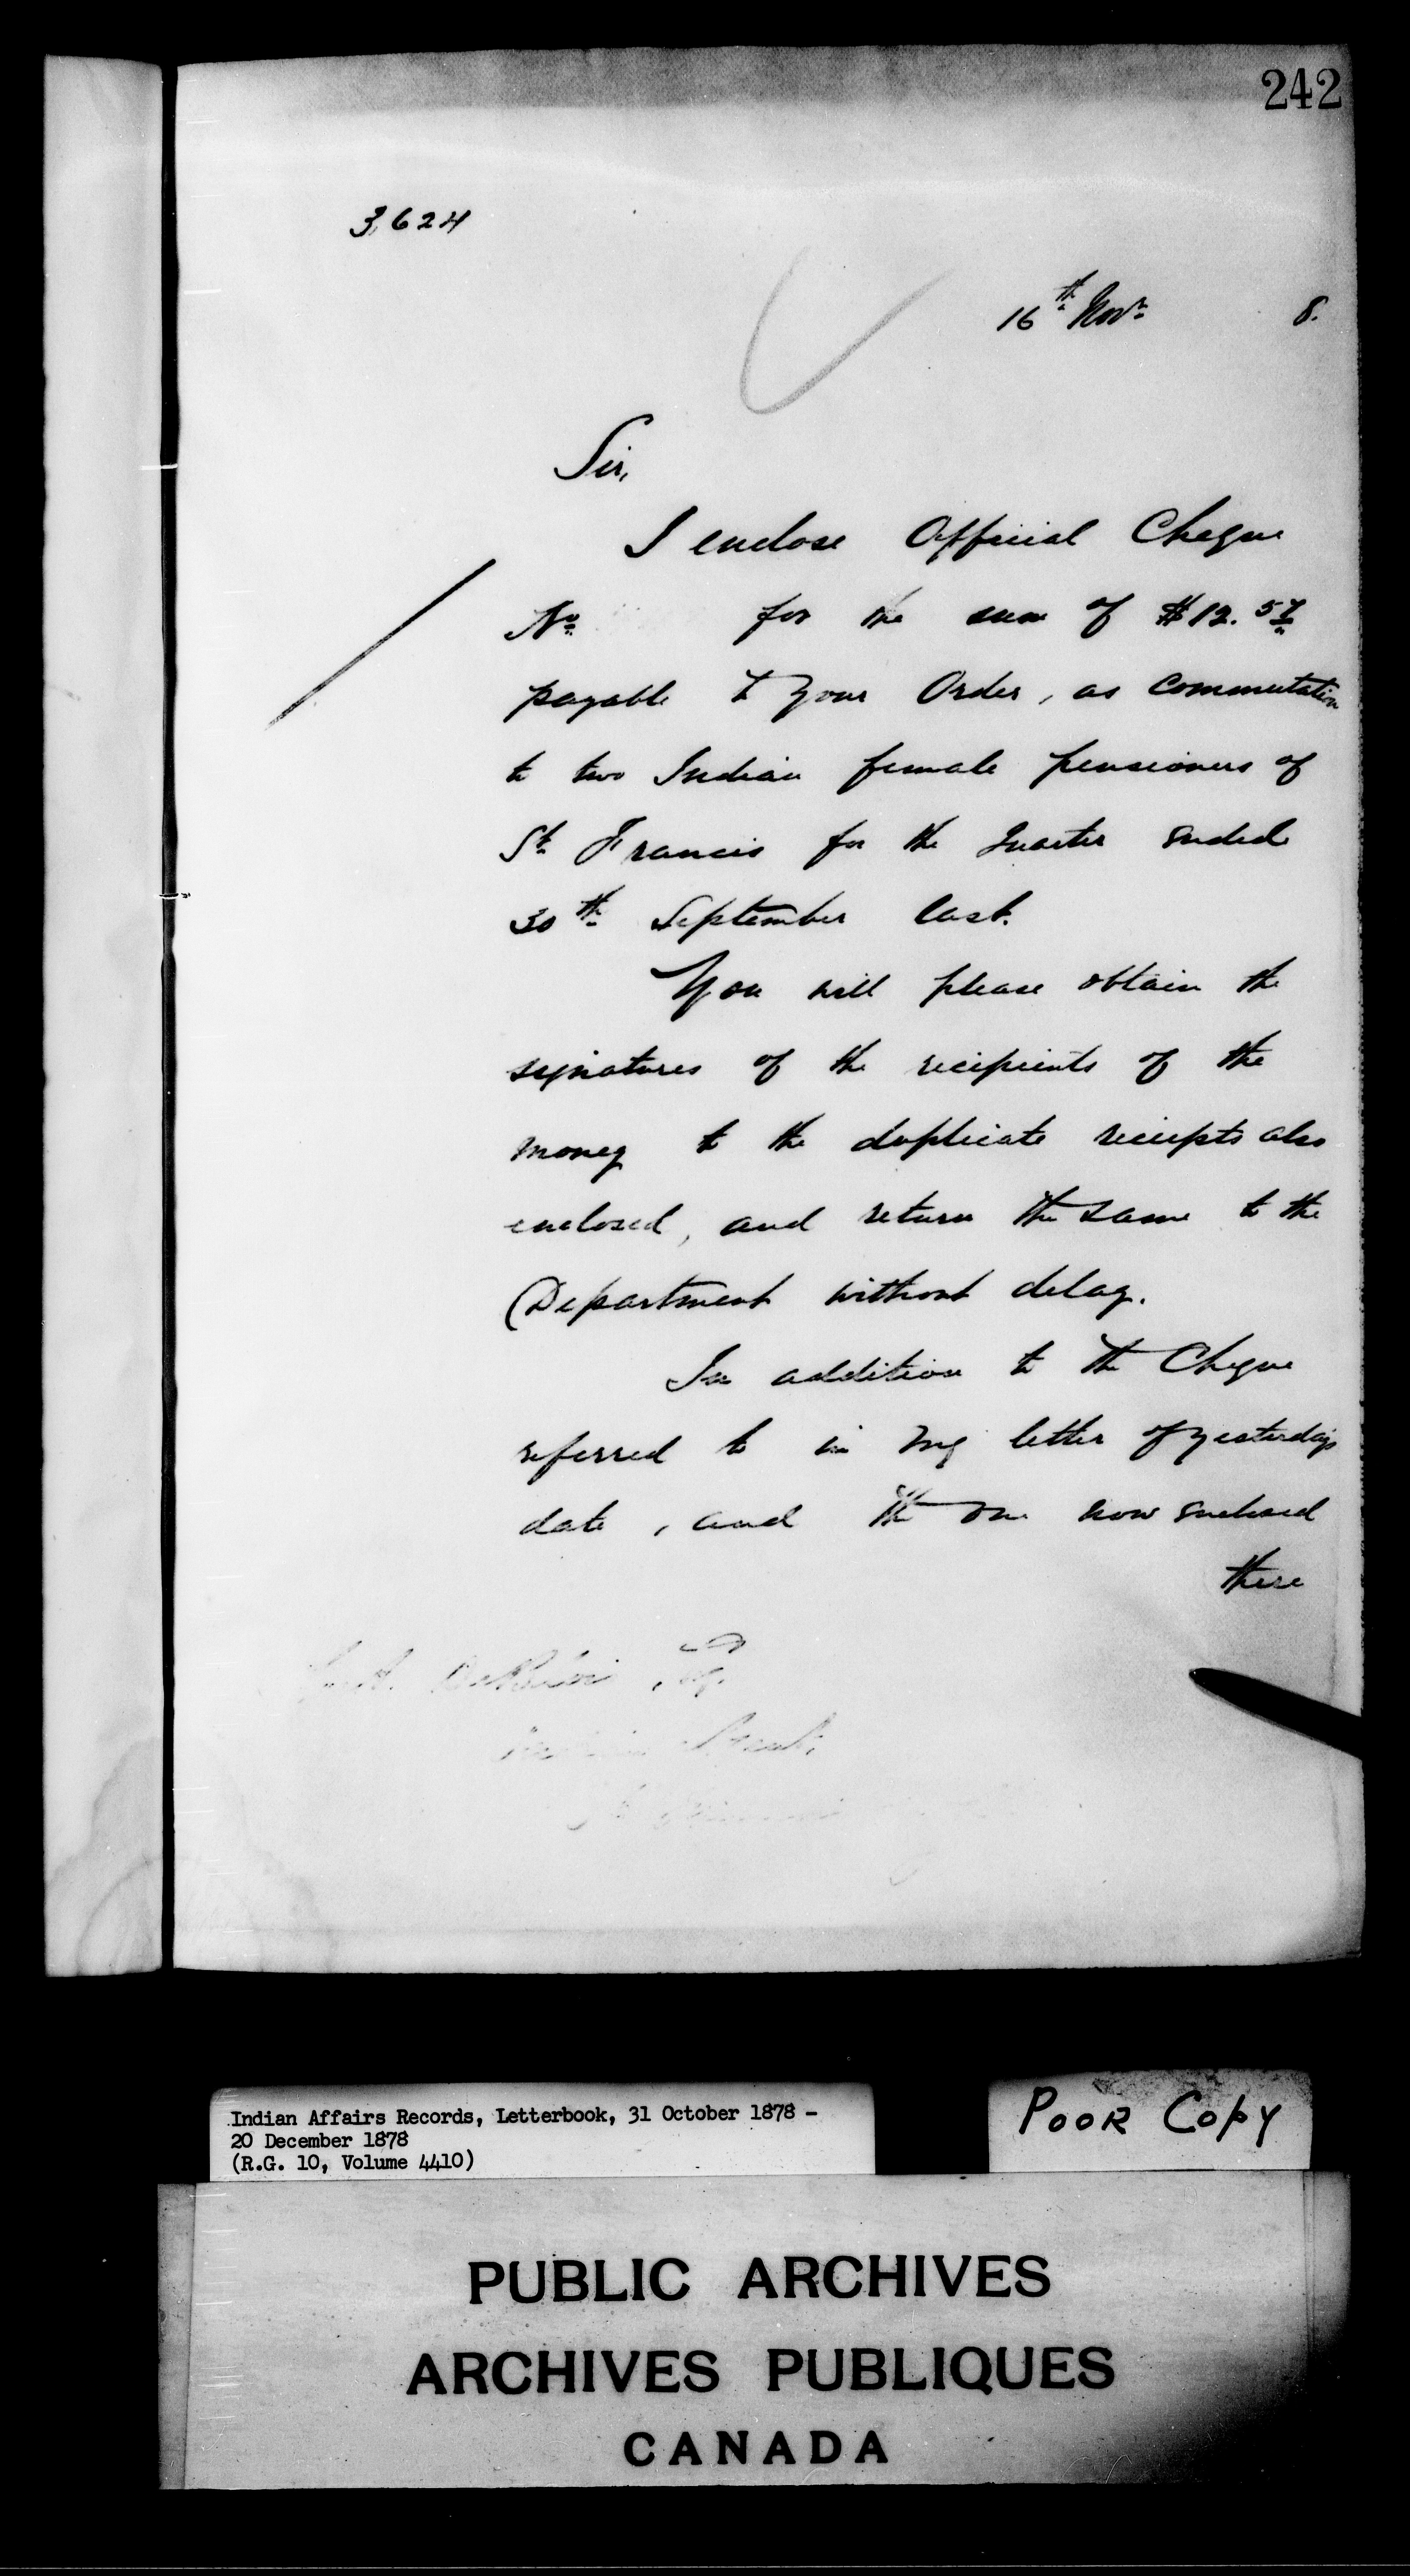 242
3,624
16th Novr 8.
Sir,
I enclose Official Cheque
No for the sum of $12.57
payable to your Order, as Commutation
to two Indian female pensioners of
St Francis for the Quarter ended
30th September last.
You will please obtain the
signatures of the recipients of the
money to the duplicate receipts also
enclosed, and return the same to the
Department without delay.
In addition to the Cheque
referred to in my letter of yesterday's
date, and the one now enclosed
there
Esq.
Indian Affairs Records, Letterbook, 31 October 1878 -
20 December 1878
(R.G. 10, Volume 4410)
POOR COPY
PUBLIC ARCHIVES
ARCHIVES PUBLIQUES
CANADA